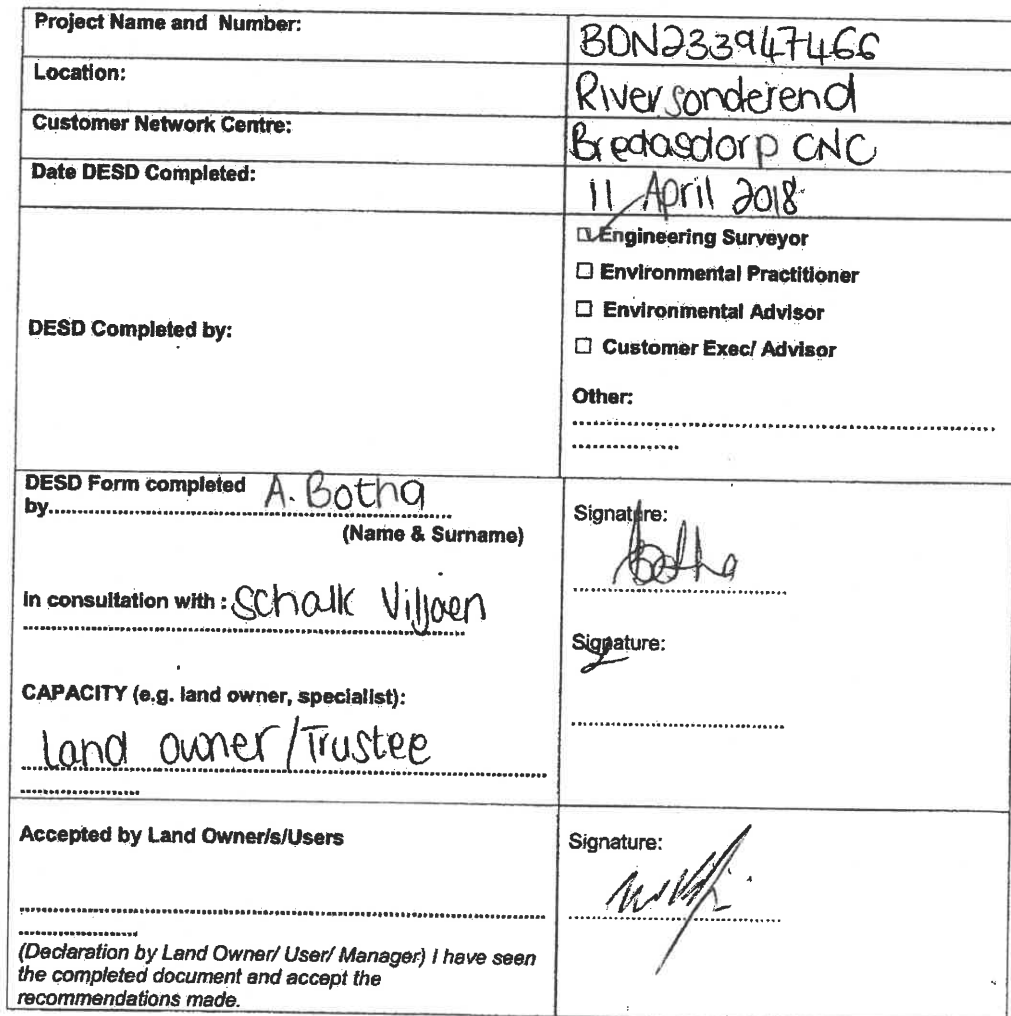 Project Name and Number:
BDN233947466
Location:
Riversonderend
Customer Network Centre:
Bredasdorp CNC
Date DESD Completed:
11 April 2018
DESD Completed by:
☑ Engineering Surveyor
☐ Environmental Practitioner
☐ Environmental Advisor
☐ Customer Exec/ Advisor
Other:
DESD Form completed
by A. Botha
(Name & Surname)
Signature:
Botha
In consultation with : Schalk Viljoen
Signature:
CAPACITY (e.g. land owner, specialist):
land owner/Trustee
Accepted by Land Owner/s/Users
Signature:
(Declaration by Land Owner/ User/ Manager) I have seen
the completed document and accept the
recommendations made.